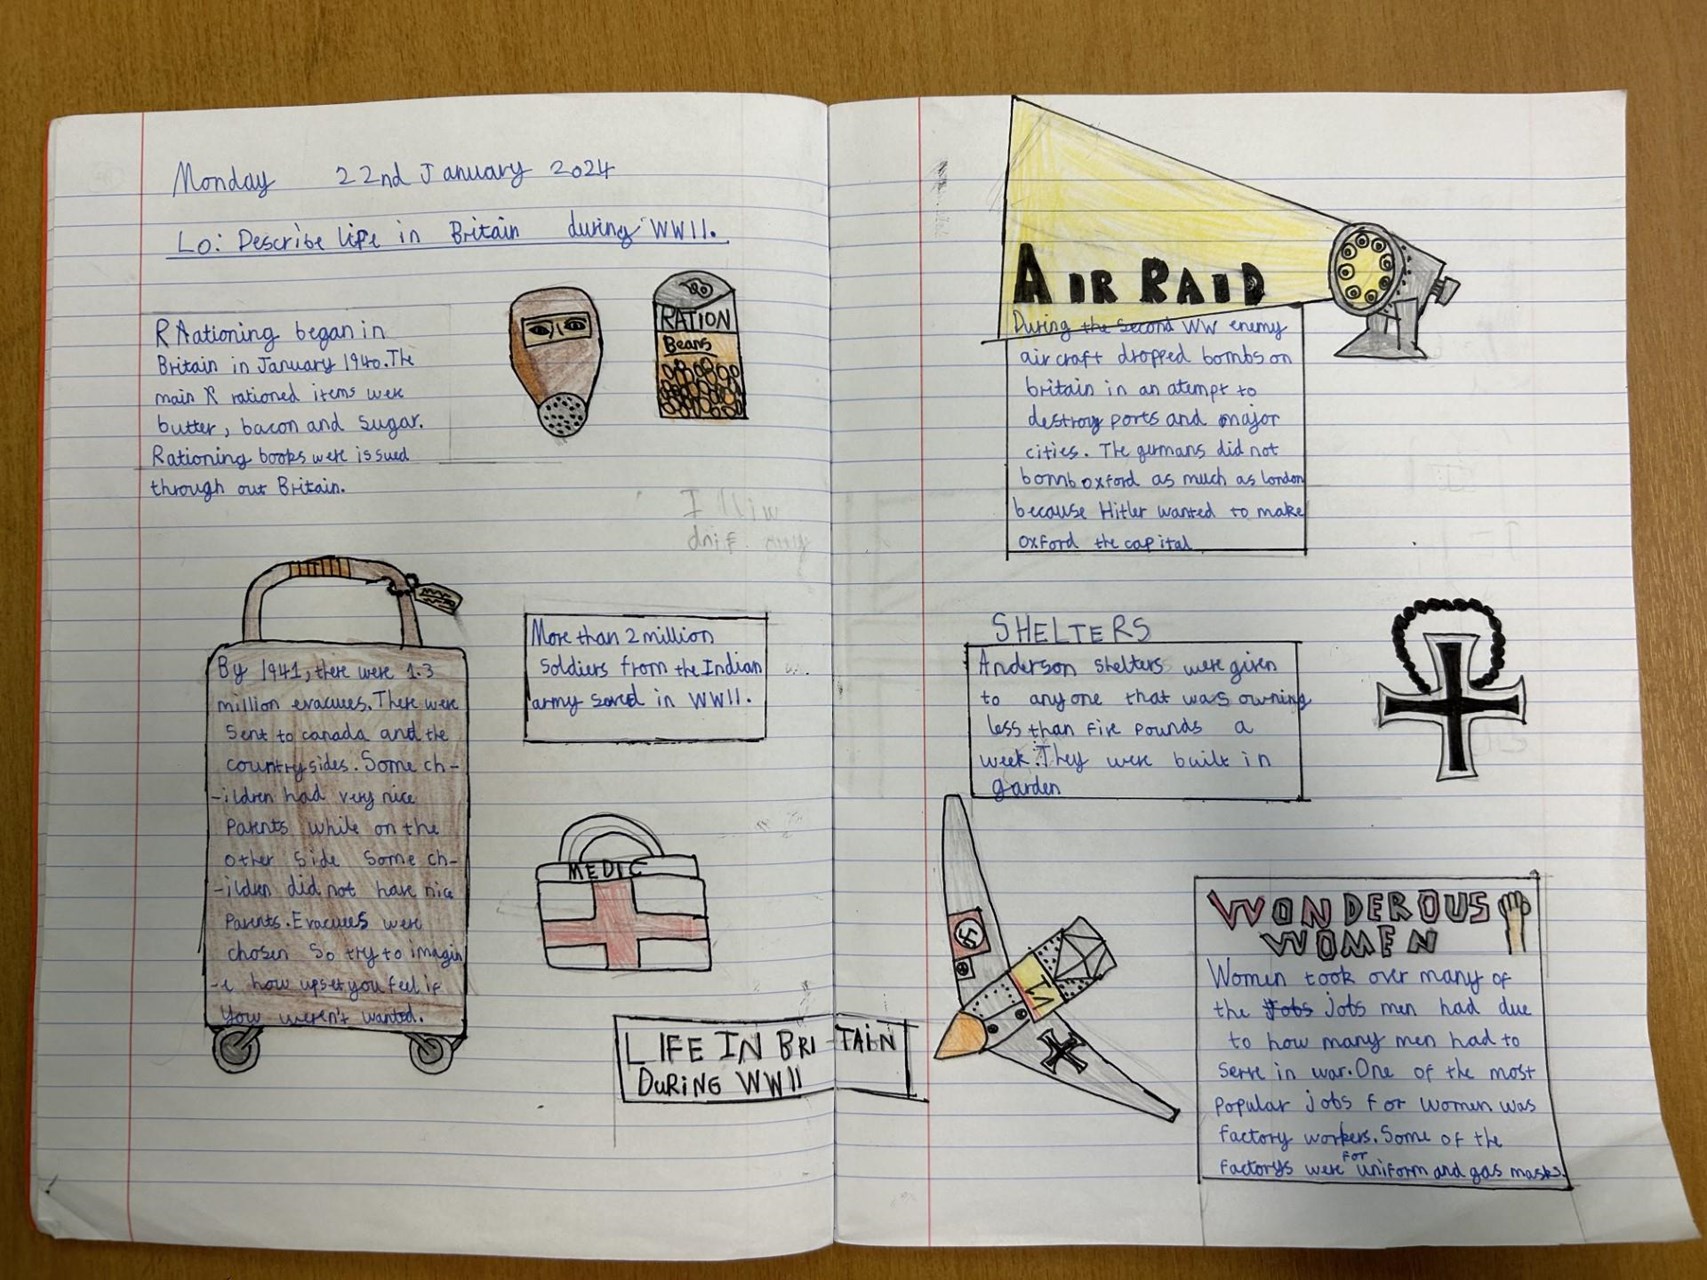 Monday 22nd January 2024
LO: Describe life in Britain during WWII.
R Aationing began in
Britain in January 1940. The
main R rationed items were
butter, bacon and sugar.
Rationing books were issued
through out Britain.
RATION
Beans
By 1941, there were 1.3
million evacuees. There were
sent to canada and the
countrysides. Some ch-
-ildren had very nice
Parents while on the
other side some ch-
-ildren did not have nice
Parents. Evacuees were
chosen So try to imagin
-e how upset you feel if
you weren't wanted.
More than 2 million
soldiers from the Indian
army served in WWII.
MEDIC
LIFE IN BRI-TAIN
DURING WWII
AIR RAID
During the Second WW enemy
air craft dropped bombs on
britain in an atempt to
destroy ports and major
cities. The germans did not
bomb oxford as much as london
because Hitler wanted to make
oxford the capital
SHELTERS
Anderson shelters were given
to anyone that was owning
less than five pounds a
week. They were built in
garden
WONDEROUS
WOMEN
Women took over many of
the Jobs jobs men had due
to how many men had to
serve in war. One of the most
popular jobs for women was
factory workers. Some of the
factorys were for uniform and gas masks.